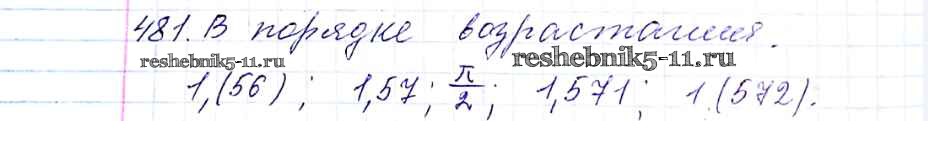 481. В порядке возрастания.
reshebnik5-11.ru reshebnik5-11.ru
1,(56); 1,57; π/2; 1,571; 1(572).